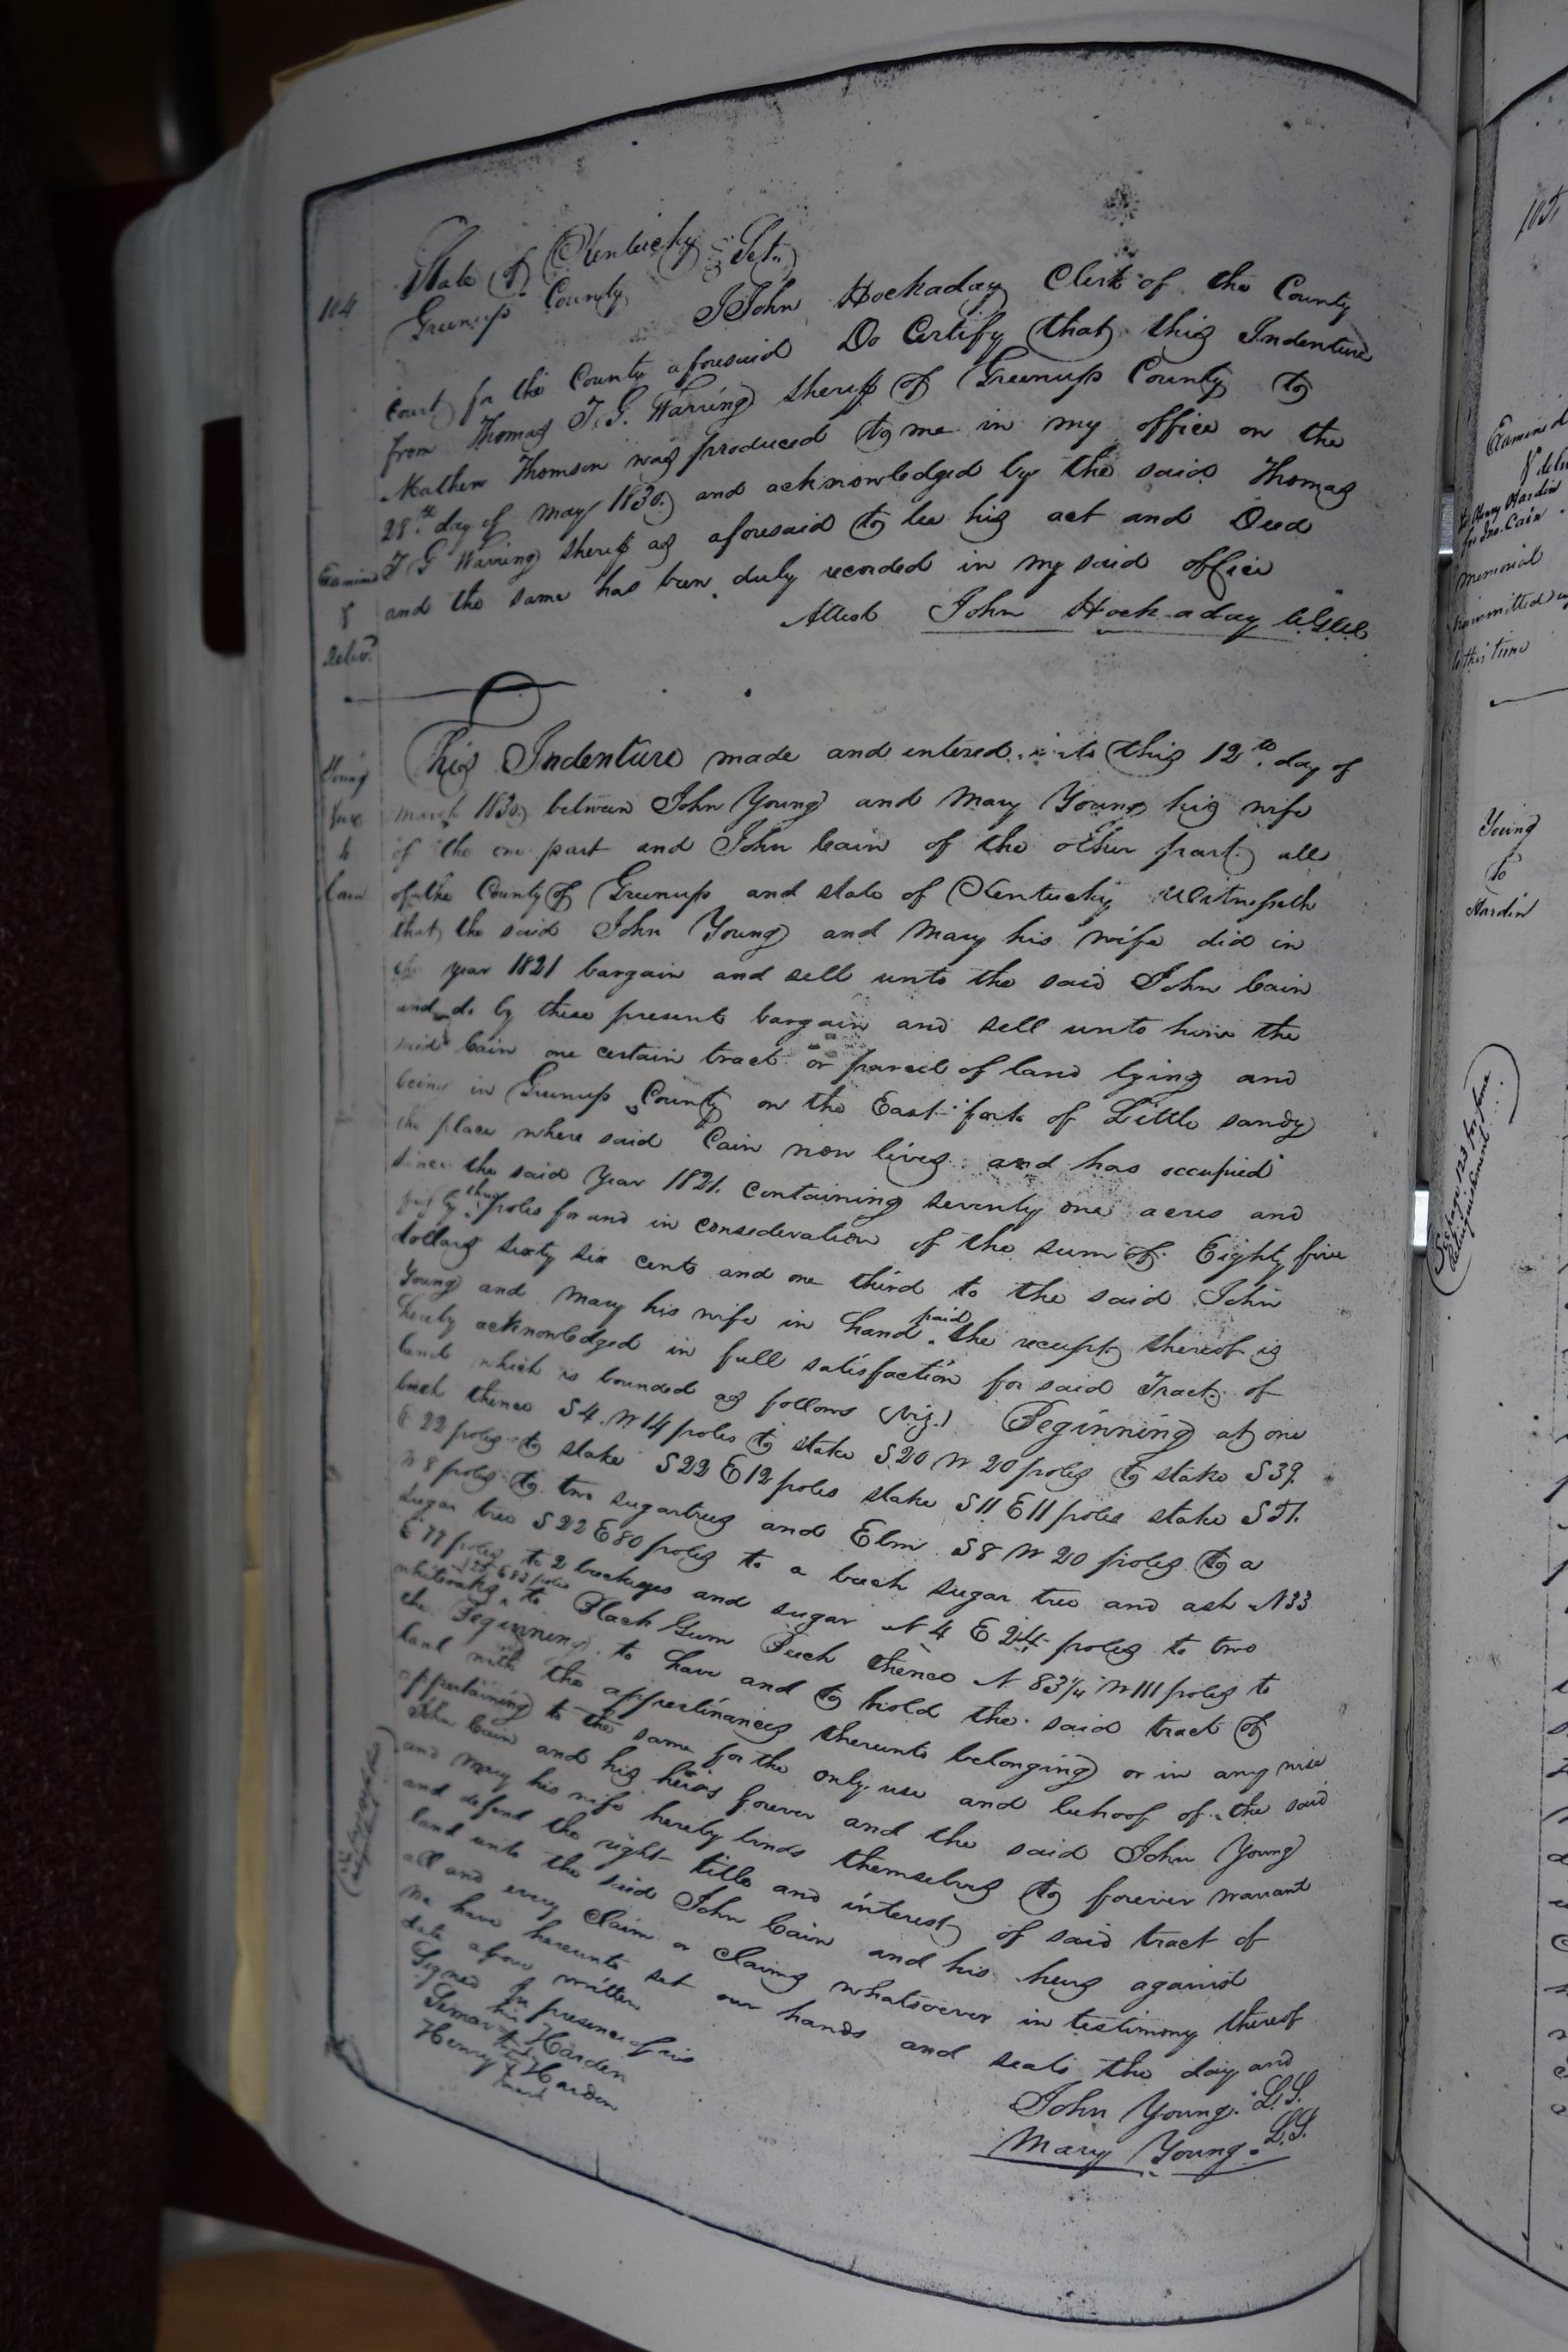 104
State of Kentucky Sct.
Greenup County
I John Hockaday Clerk of the County
Court for the County aforesaid Do Certify that this Indenture
from Thomas T. G. Warring Sheriff of Greenup County to
Mathew Thomson was produced to me in my office on the
28th day of may 1830 and acknowledged by the said Thomas
T G Warring sheriff as aforesaid to be his act and Deed
and the same has been duly recorded in my said office
Attest John Hockaday
Examined
&
deliv.d
This Indenture made and entered into this 12th day of
march 1830 between John Young and Mary Young his wife
of the one part and John Cain of the other part all
of the County of Greenup and state of Kentucky Witnesseth
that the said John Young and Mary his wife did in
the year 1821 bargain and sell unto the said John Cain
and do by these present bargain and sell unto him the
said Cain one certain tract or parcel of land lying and
being in Greenup County on the East fork of Little sandy
the place where said Cain now lives and has occupied
since the said year 1821. containing seventy one acres and
fifty three poles for and in consideration of the sum of Eighty five
dollars sixty six cents and one third to the said John
Young and Mary his wife in hand paid the receipt thereof is
hereby acknowledged in full satisfaction for said Tract of
land which is bounded as follows (viz.) Beginning at one
beech thence S4. W14 poles to stake S20 W 20 poles to stake S39.
E 22 poles to stake S22 E12 poles stake S11 E11 poles stake S51.
W 8 poles to two sugartrees and Elm S8 W 20 poles to a
sugar tree S22 E80 poles to a beech sugar tree and ash N33
E 77 poles to 2 buckeyes and sugar N 4 E 24 poles to two
whiteoaks to Black Gum Beech thence N 83 1/4 W111 poles to
the Beginning. to have and to hold the said tract of
land with the appertinances thereunto belonging or in any wise
appertaining to the same for the only use and behoof of the said
John Cain and his heirs forever and the said John Young
and Mary his wife hereby binds themselves to forever warrant
and defend the right title and interest of said tract of
land unto the said John Cain and his heirs against
all and every claim or claims whatsoever in testimony thereof
we have hereunto set our hands and seals the day and
date above written
Signed In presence of us
Harden
Henry his mark Harden
John Young. L.S.
Mary Young. L.S.
Young
to
Cain
105
Examined
& deliv
to Henry Hardin
for Jno. Cain
Memorial
transmitted up
to this time
Young
to
Hardin
See page 123 for
relinquishment